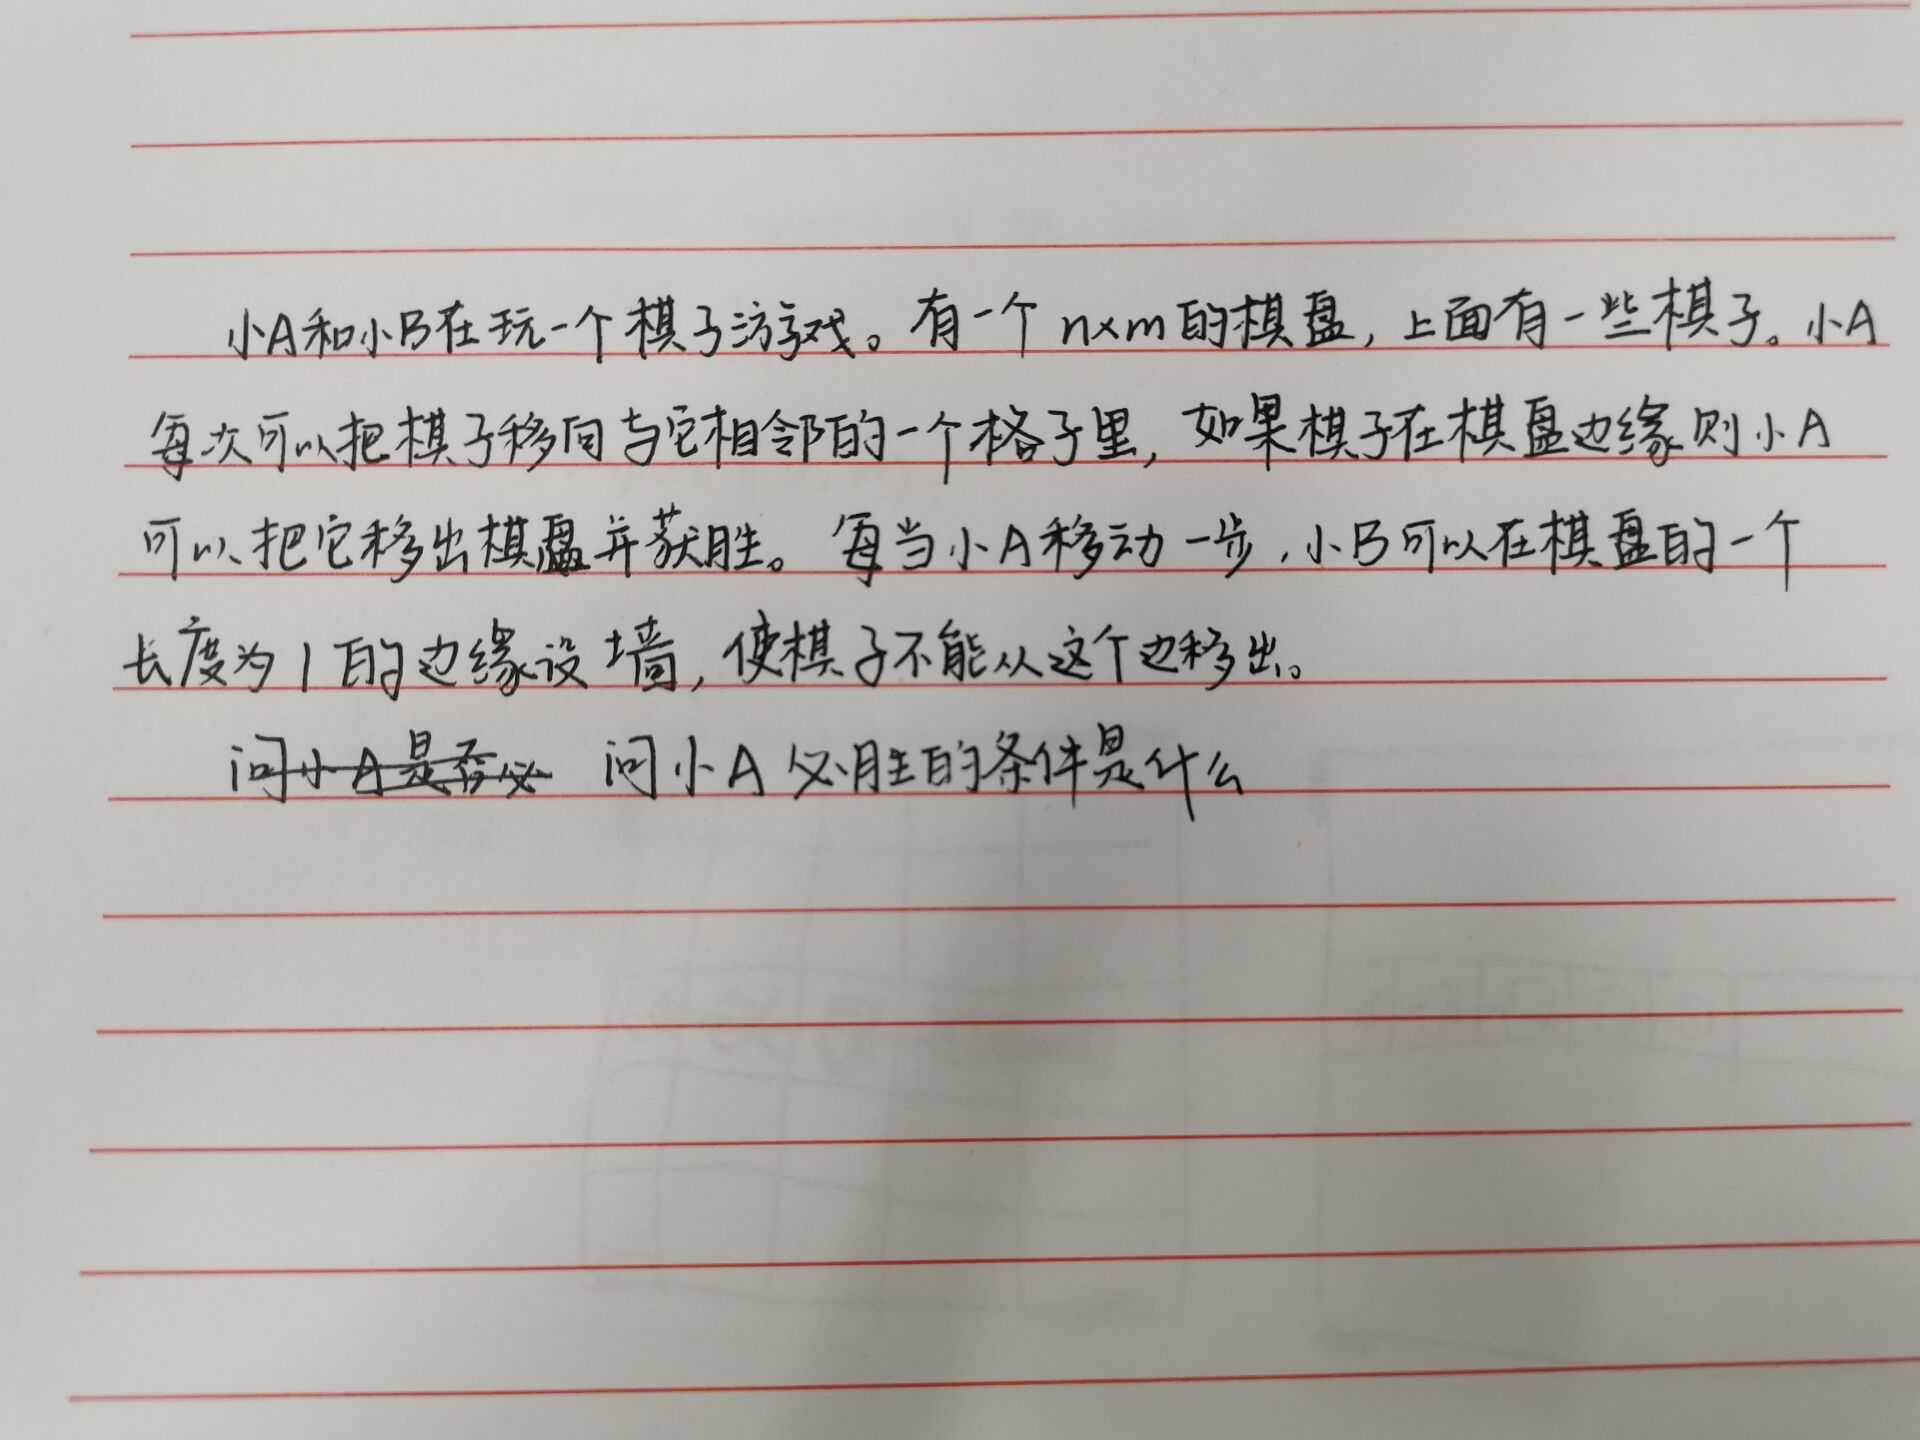 小A和小B在玩一个棋子游戏。有一个n×m的棋盘,上面有一些棋子。小A
每次可以把棋子移向与它相邻的一个格子里,如果棋子在棋盘边缘则小A
可以把它移出棋盘并获胜。每当小A移动一步,小B可以在棋盘的一个
长度为1的边缘设墙,使棋子不能从这个边移出。
问小A是否必 问小A必胜的条件是什么